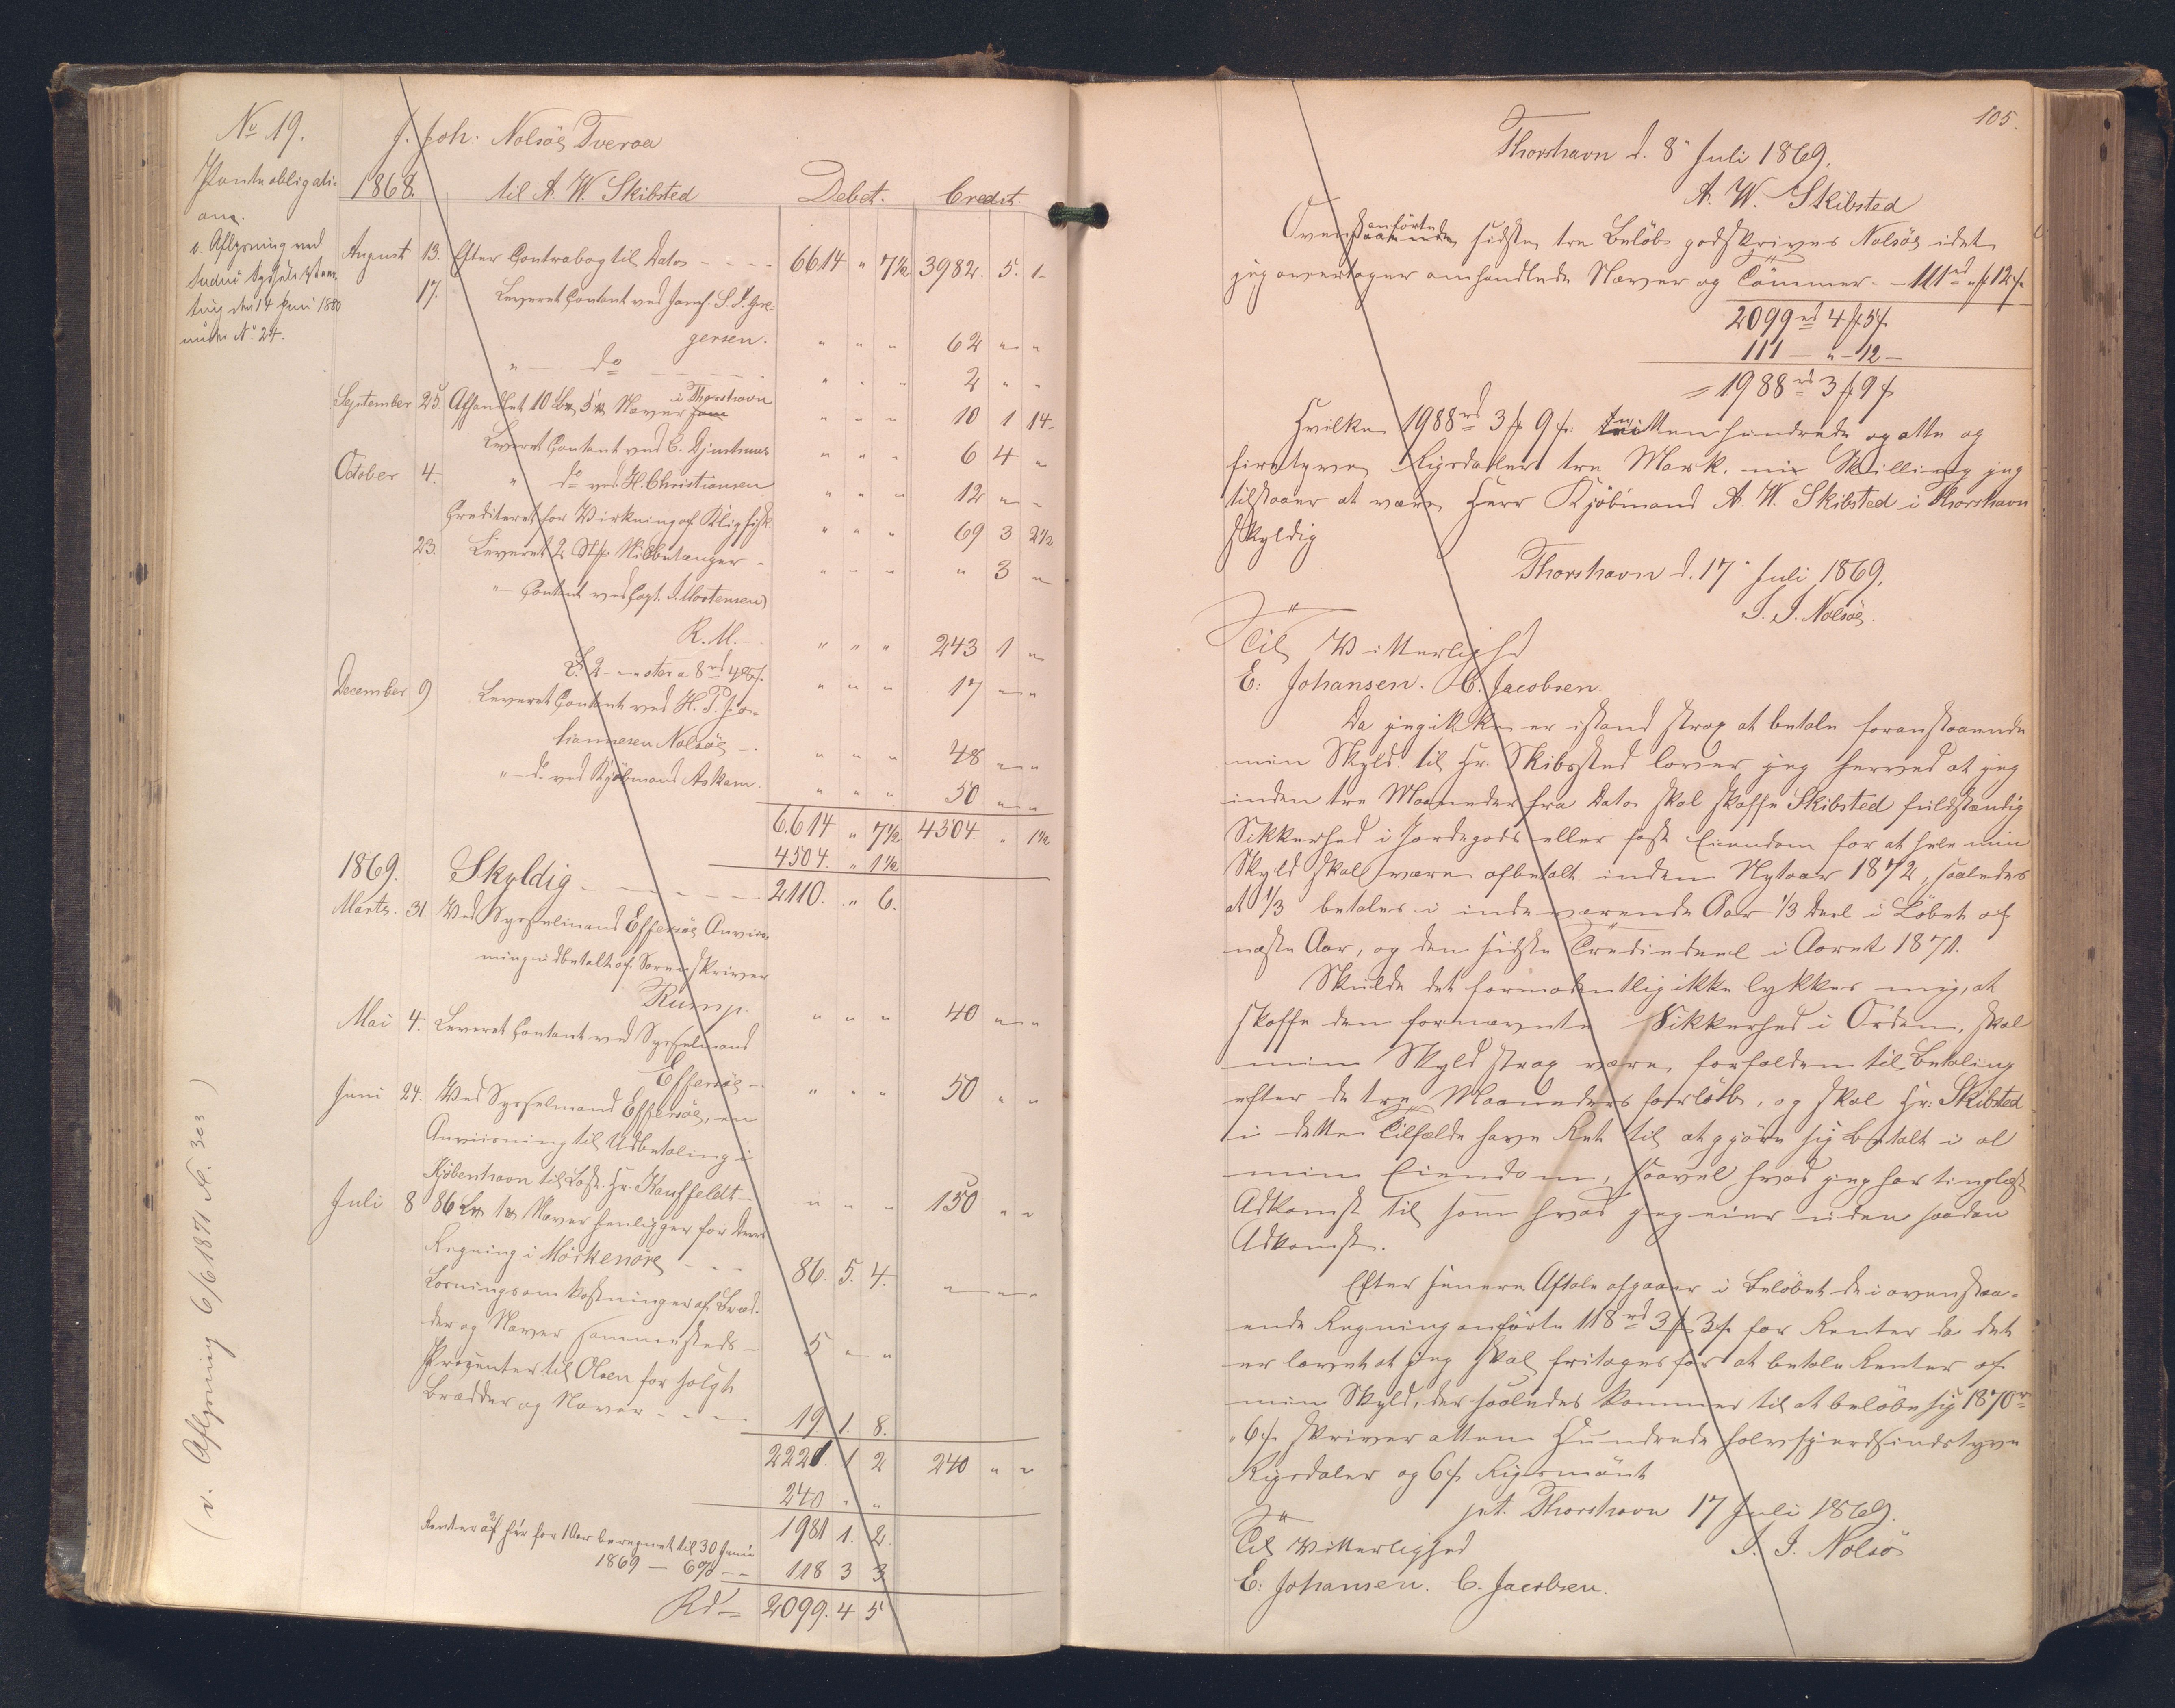 No 19.
Panteobligati-
oner.
v. Aflysning ved
Suderø Syssels Vaar-
ting den 14 Juni 1880
under No 24.
(v. Aflysning 6/6 1871 A. 303)
J. Joh: Nolsöe Tveraa
1868. til A. W. Skibsted Debet. Credit.
August 13. Efter Contrabog til Dato - - - 6614 " 7½ 3982. 5. 1-
17. Leveret Contant ved Jomf. S. S. Gre-
gersen. " " " 62 " "
" - do - - - - " " " 2 " "
September 25. Afsendt 10 L℔ 5 ℔ Næver i Thorshavn " " " 10 1 14-
Leveret Contant ved C. Djurhuus " " " 6 4 "
October 4. " do ved H. Christiansen " " " 12 " "
Crediteret for Virkning af Klipfisk " " " 69 3 2½
23. Leveret 2 Stk: Kibbetænger - " " " " 3 "
" - Contant ved Capt. J. Mortensen
R. M. - " " " 243 1 "
L. 2 - " ster a 8 rd 4 ℳ " " " 17 " "
December 9. Leveret Contant ved H. P. Jo-
hannesen Nolsöe - " " " 48 " "
" - do ved Kjöbmand Askam. " " " 50 " "
6.614 " 7½ 4504. " 1½
4504. " 1½
1869. Skyldig - - - - - 2110. " 6.
Marts. 31. Ved Sysselmand Effersöe Anviis-
ning udbetalt af Sorenskriver
Rump. " " " 40 " "
Mai 4. Leveret Contant ved Sysselmand
Effersöe - " " " 50 " "
Juni 24. Ved Sysselmand Effersöe, en
Anviisning til Udbetaling i
Kjöbenhavn til Hr. Kauffeldt - " " " 150 " "
Juli 8 86 L℔ 1 ℔ Næver henligger for Deres
Regning i Mörkenöre - - - 86. 5. 4. " " "
Losningsomkostninger af Bræd-
der og Næver sammesteds - 5 " "
Procenter til Olsen for solgte
Brædder og Næver - - - 19. 1. 8.
2221. 1 2 240 " "
240 " "
1981 1. 2.
Renter af her for 1 Aar beregnet til 30 Juni
1869 - 6% - - 118 3 3
Rd = 2099. 4 5
105.
Thorshavn d. 8 Juli 1869.
A. W. Skibsted
Ovenanförte sidste tre Beløb godskrives Nolsöe idet
jeg overtager omhandlede Næver og Tömmer - - 111 rd " ℳ 12 ſ
2099 rd 4 ℳ 5 ſ
111 - " - 12 -
= 1988 rd 3 ℳ 9 ſ
Hvilke 1988 rd 3 ℳ 9 ſ: nitten hundrede og otte og
firstyve Rigsdaler tre Mark. ni Skilling jeg
tilstaaer at være Herr Kjöbmand A. W. Skibsted i Thorshavn
skyldig
Thorshavn d. 17 Juli 1869.
J. J. Nolsöe.
Til Vitterlighed
E: Johansen. C. Jacobsen
Da jeg ikke er istand strax at betale foranstaaende
min Skyld til Hr. Skibsted lover jeg herved at jeg
inden tre Maaneder fra Dato skal skaffe Skibsted fuldstændig
Sikkerhed i Jordegods eller fast Eiendom for at hele min
Skyld skal være afbetalt inden Nytaar 1872, saaledes
at 1/3 betales i indeværende Aar 1/3 Deel i Löbet af
næste Aar, og den sidste Trediedeel i Aaret 1871.
Skulde det formodentlig ikke lykkes mig, at
skaffe den fornævnte Sikkerhed i Orden, skal
min Skyld strax være forfalden til Betaling
efter de tre Maaneders forlöb, og skal Hr: Skibsted
i dette Tilfælde have Ret til at gjöre sig betalt i al
min Eiendom, saavel hvad jeg har tinglæst
Adkomst til som hvad jeg eier uden saadan
Adkomst.
Efter senere Aftale afgaaer i Belöbet de i ovenstaa-
ende Regning anförte 118 rd 3 ℳ 3 ſ for Renter da det
er lovet at jeg skal fritages for at betale Renter af
min Skyld, der saaledes kommer til at belöbe sig 1870 rd
" 6 ſ skriver atten Hundrede halvfjerdsindstyve
Rigsdaler og 6 ſ Rigsmönt
pt. Thorshavn 17 Juli 1869.
Til Vitterlighed J. J. Nolsö
E: Johansen. C. Jacobsen.